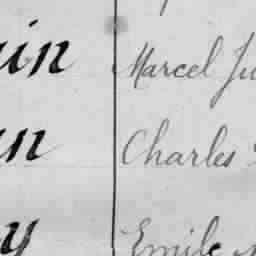 in Marcel Ju
in Charles
y Emile